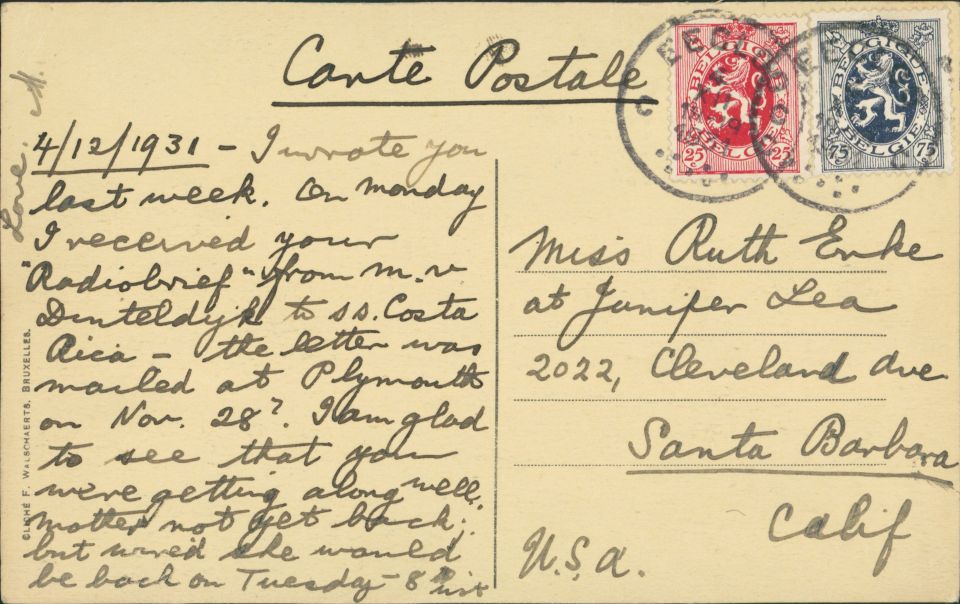 Carte Postale
4/12/1931 - I wrote you
last week. On Monday
I received your
"Radiobrief" from m.v
Dinteldyk to ss. Costa
Rica - the letter was
mailed at Plymouth
on Nov. 28?. I am glad
to see that you
were getting along well.
Mother not yet back:
but wired she would
be back on Tuesday - 8th inst
Love. M.
CLICHÉ F. WALSCHAERTS, BRUXELLES.
BELGIQUE
25 25
BELGIE
BELGIQUE
75 75
BELGIE
Miss Ruth Enke
at Juniper Lea
2022, Cleveland Ave
Santa Barbara
Calif
U.S.A.